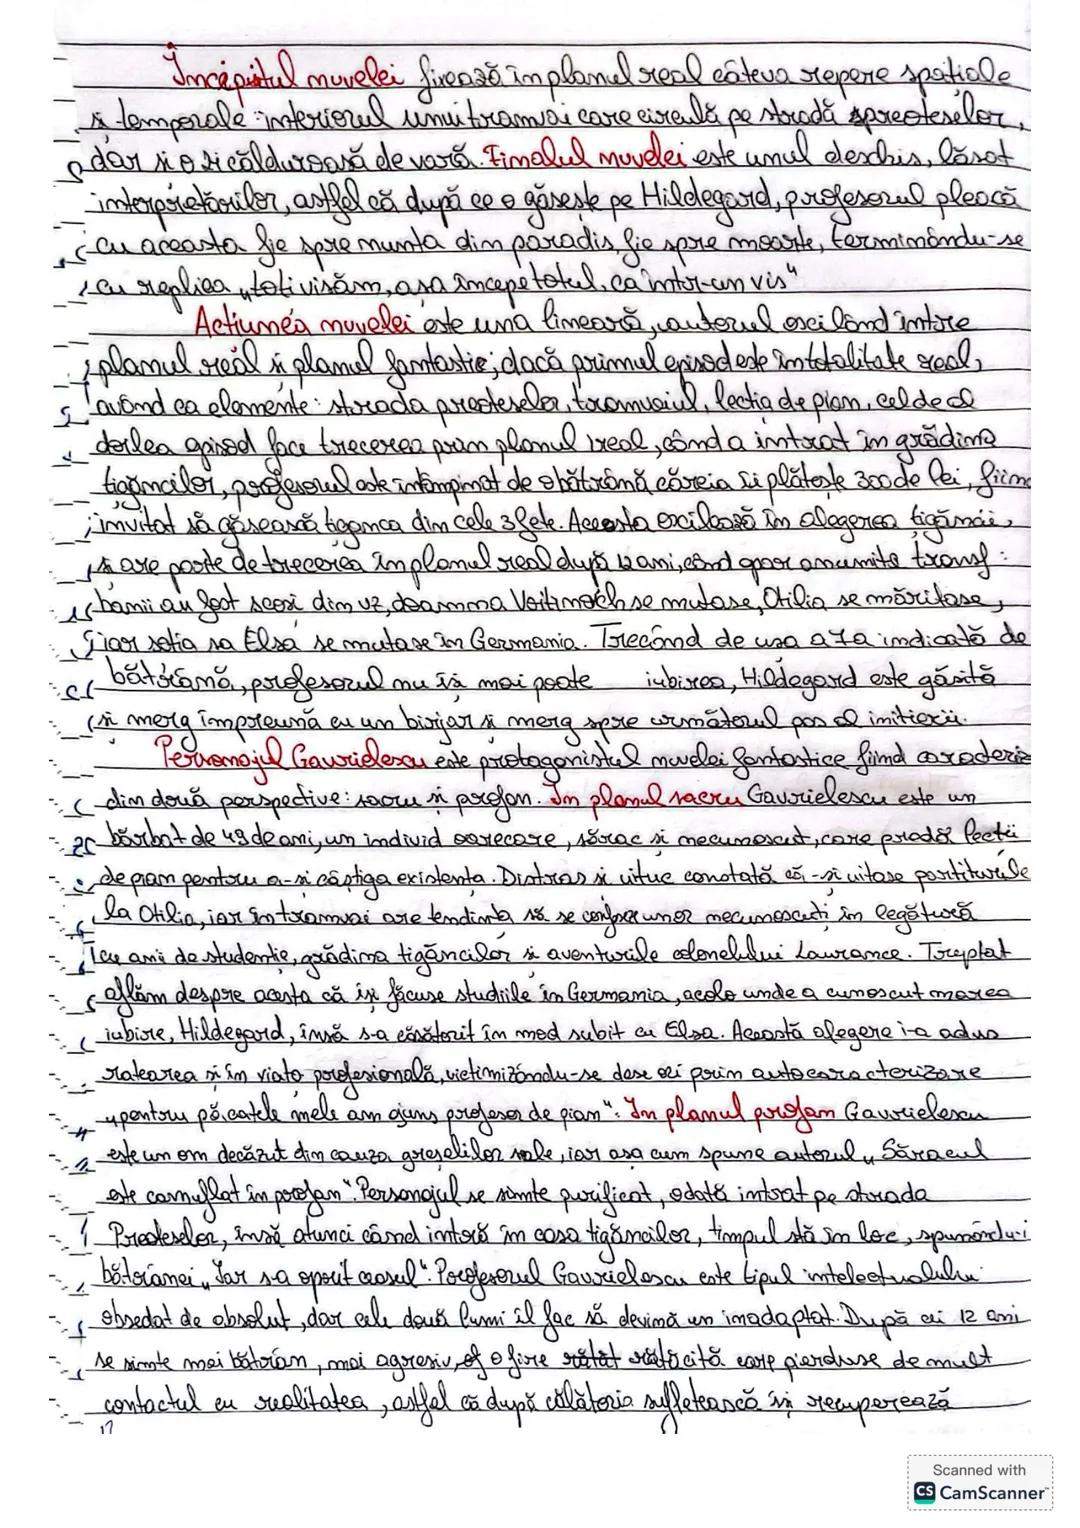 Incipitul nuvelei fixează în planul real câteva repere spațiale
și temporale: interiorul unui tramvai care circulă pe stradă spreoteselor,
dar și o zi călduroasă de vară. Finalul nuvelei este unul deschis, lăsat
interpretărilor, astfel că după ce o găsește pe Hildegard, profesorul pleacă
cu aceasta fie spre nunta din paradis, fie spre moarte, terminându-se
cu replica „toți visăm, așa începe totul, ca într-un vis"
Acțiunea nuvelei este una lineară, autorul oscilând între
planul real și planul fantastic; dacă primul episod este în totalitate real,
având ca elemente: strada preoteselor, tramvaiul, lecția de pian, cel de al
doilea episod face trecerea prin planul ireal, când a intrat în grădina
țigăncilor, profesorul este întâmpinat de o bătrână căreia îi plătește 300 de lei, fiind
invitat să găsească țiganca din cele 3 fete. Acesta oscilează în alegerea țigăncii,
și are parte de trecerea în planul real după 12 ani, când apar anumite transf:
banii au fost scoși din uz, doamna Voitinovici se mutase, Otilia se măritase,
iar soția sa Elsa se mutase în Germania. Trecând de ușa a 7a indicată de
bătrână, profesorul nu își mai poate iubirea, Hildegard este găsită
și merg împreună cu un birjar și merg spre următorul pas al inițierii.
Personajul Gavrilescu este protagonistul nuvelei fantastice fiind caracteriz
din două perspective: sacru și profan. În planul sacru Gavrielescu este un
bărbat de 49 de ani, un individ oarecare, sărac și necunoscut, care predă lecții
de pian pentru a-și câștiga existența. Distras și uituc constată că-și uitase partiturile
la Otilia, iar în tramvai are tendința să se confeseze unor necunoscuți în legătură
cu anii de studenție, grădina țigăncilor și aventurile colonelului Lawrance. Treptat
aflăm despre acesta că își făcuse studiile în Germania, acolo unde a cunoscut marea
iubire, Hildegard, însă s-a căsătorit în mod subit cu Elsa. Această alegere i-a adus
ratearea și în viața profesională, victimizându-se dese ori prin autocaracterizare
„pentru păcatele mele am ajuns profesor de pian". În planul profan Gavrielescu
este un om decăzut din cauza greșelilor sale, iar așa cum spune autorul „Săracul
este camuflat în profan". Personajul se simte purificat, odată intrat pe strada
Preoteselor, însă atunci când intră în casa țigăncilor, timpul stă în loc, spunându-i
bătrânei „Iar s-a oprit ceasul". Profesorul Gavrielescu este tipul intelectualului
obsedat de absolut, dar cele două lumi îl fac să devină un inadaptat. După cei 12 ani
se simte mai bătrân, mai agresiv, of o fire rătăcită care pierduse de mult
contactul cu realitatea, astfel că după călătoria sufletească își recuperează
Scanned with
CS CamScanner